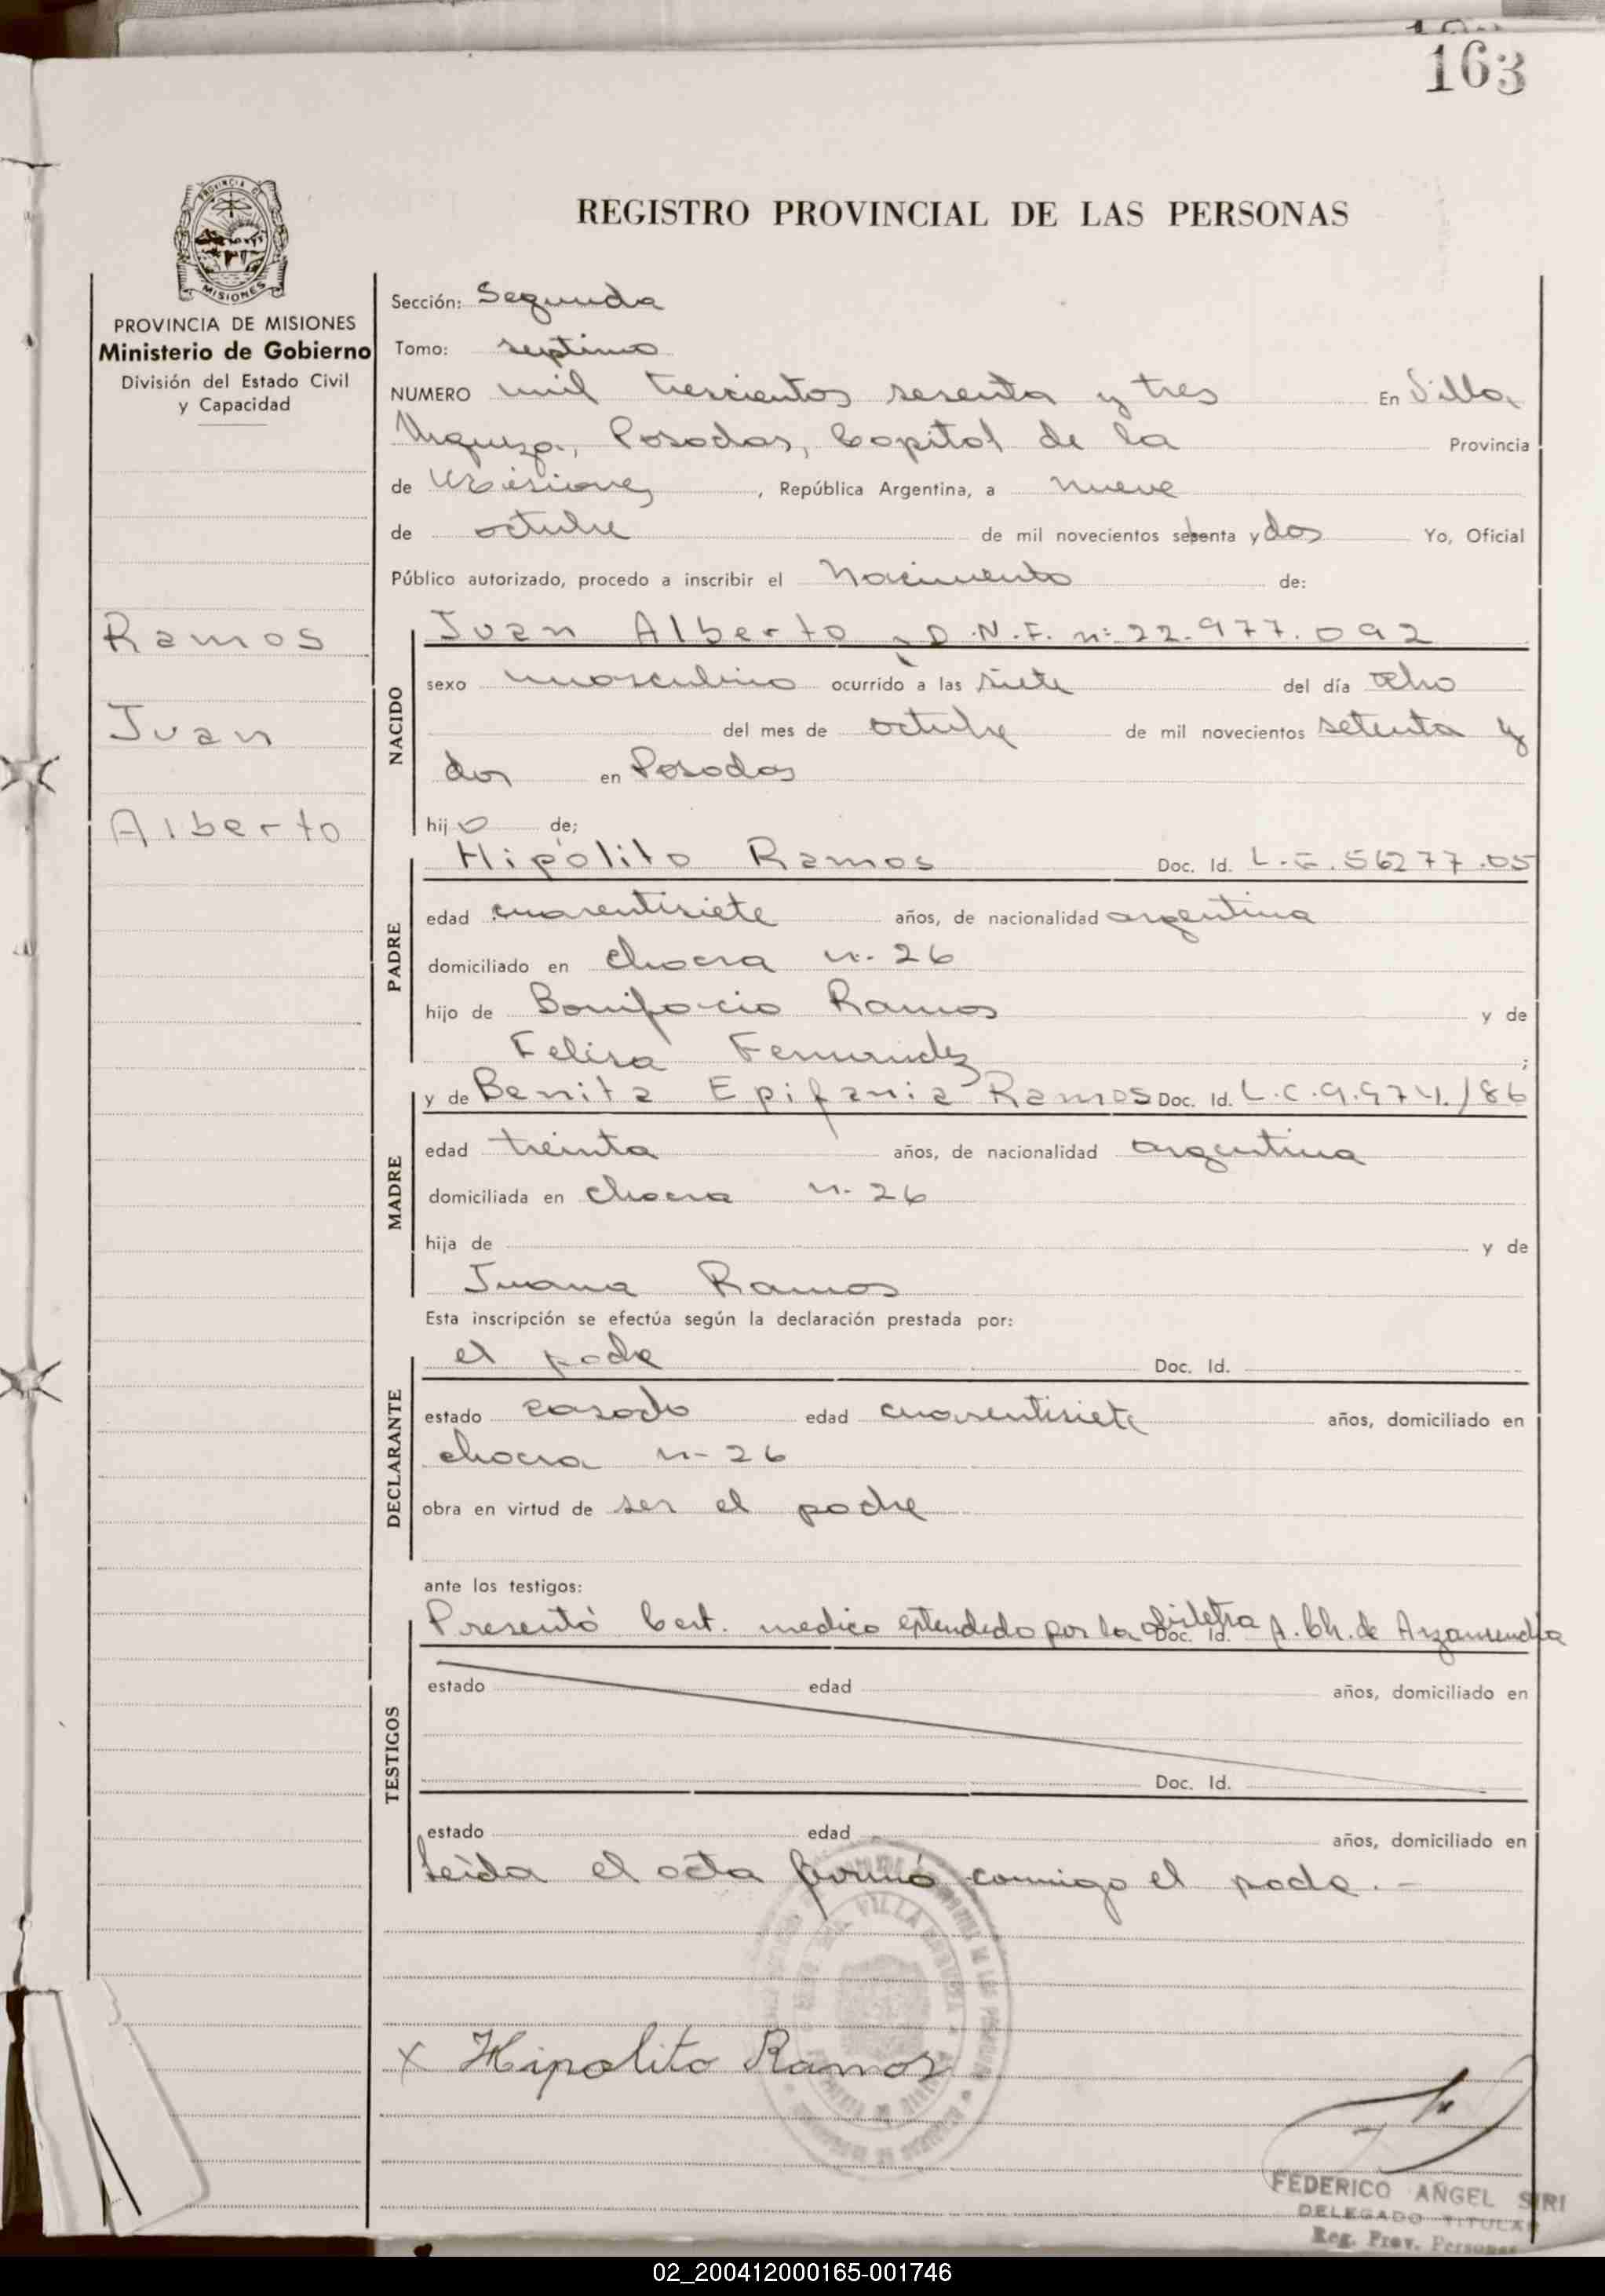 163
REGISTRO PROVINCIAL DE LAS PERSONAS
PROVINCIA DE MISIONES
Ministerio de Gobierno
División del Estado Civil
y Capacidad
Ramos
Juan
Alberto
Sección: Segunda
Tomo: septimo
NUMERO mil trescientos sesenta y tres En Villa
Urquiza, Posadas, Capital de la Provincia
de Misiones, República Argentina, a nueve
de octubre de mil novecientos setenta y dos Yo, Oficial
Público autorizado, procedo a inscribir el Nacimiento de:
NACIDO
Juan Alberto D.N.I. nº 22.977.092
sexo masculino ocurrido a las siete del día ocho
del mes de octubre de mil novecientos setenta y
dos en Posadas
hijo de;
PADRE
Hipólito Ramos Doc. Id. L.E. 56277.05
edad cuarentisiete años, de nacionalidad argentina
domiciliado en chacra n- 26
hijo de Bonifacio Ramos y de
Felisa Fernandez ;
MADRE
y de Benita Epifania Ramos Doc. Id. L.C. 9.974.186
edad treinta años, de nacionalidad argentina
domiciliada en chacra n- 26
hija de y de
Juana Ramos
Esta inscripción se efectúa según la declaración prestada por:
DECLARANTE
el padre Doc. Id.
estado casado edad cuarentisiete años, domiciliado en
chacra n- 26
obra en virtud de ser el padre
ante los testigos:
TESTIGOS
Presentó Cert. medico extendido por la obstetra Doc. Id. A. Ch. de Arzamendia
estado edad años, domiciliado en
Doc. Id.
estado edad años, domiciliado en
Leida el acta firmó conmigo el padre.-
VILLA URQUIZA
x Hipolito Ramos
FEDERICO ANGEL SIRI
DELEGADO TITULAR
Reg. Prov. Personas
02_200412000165-001746